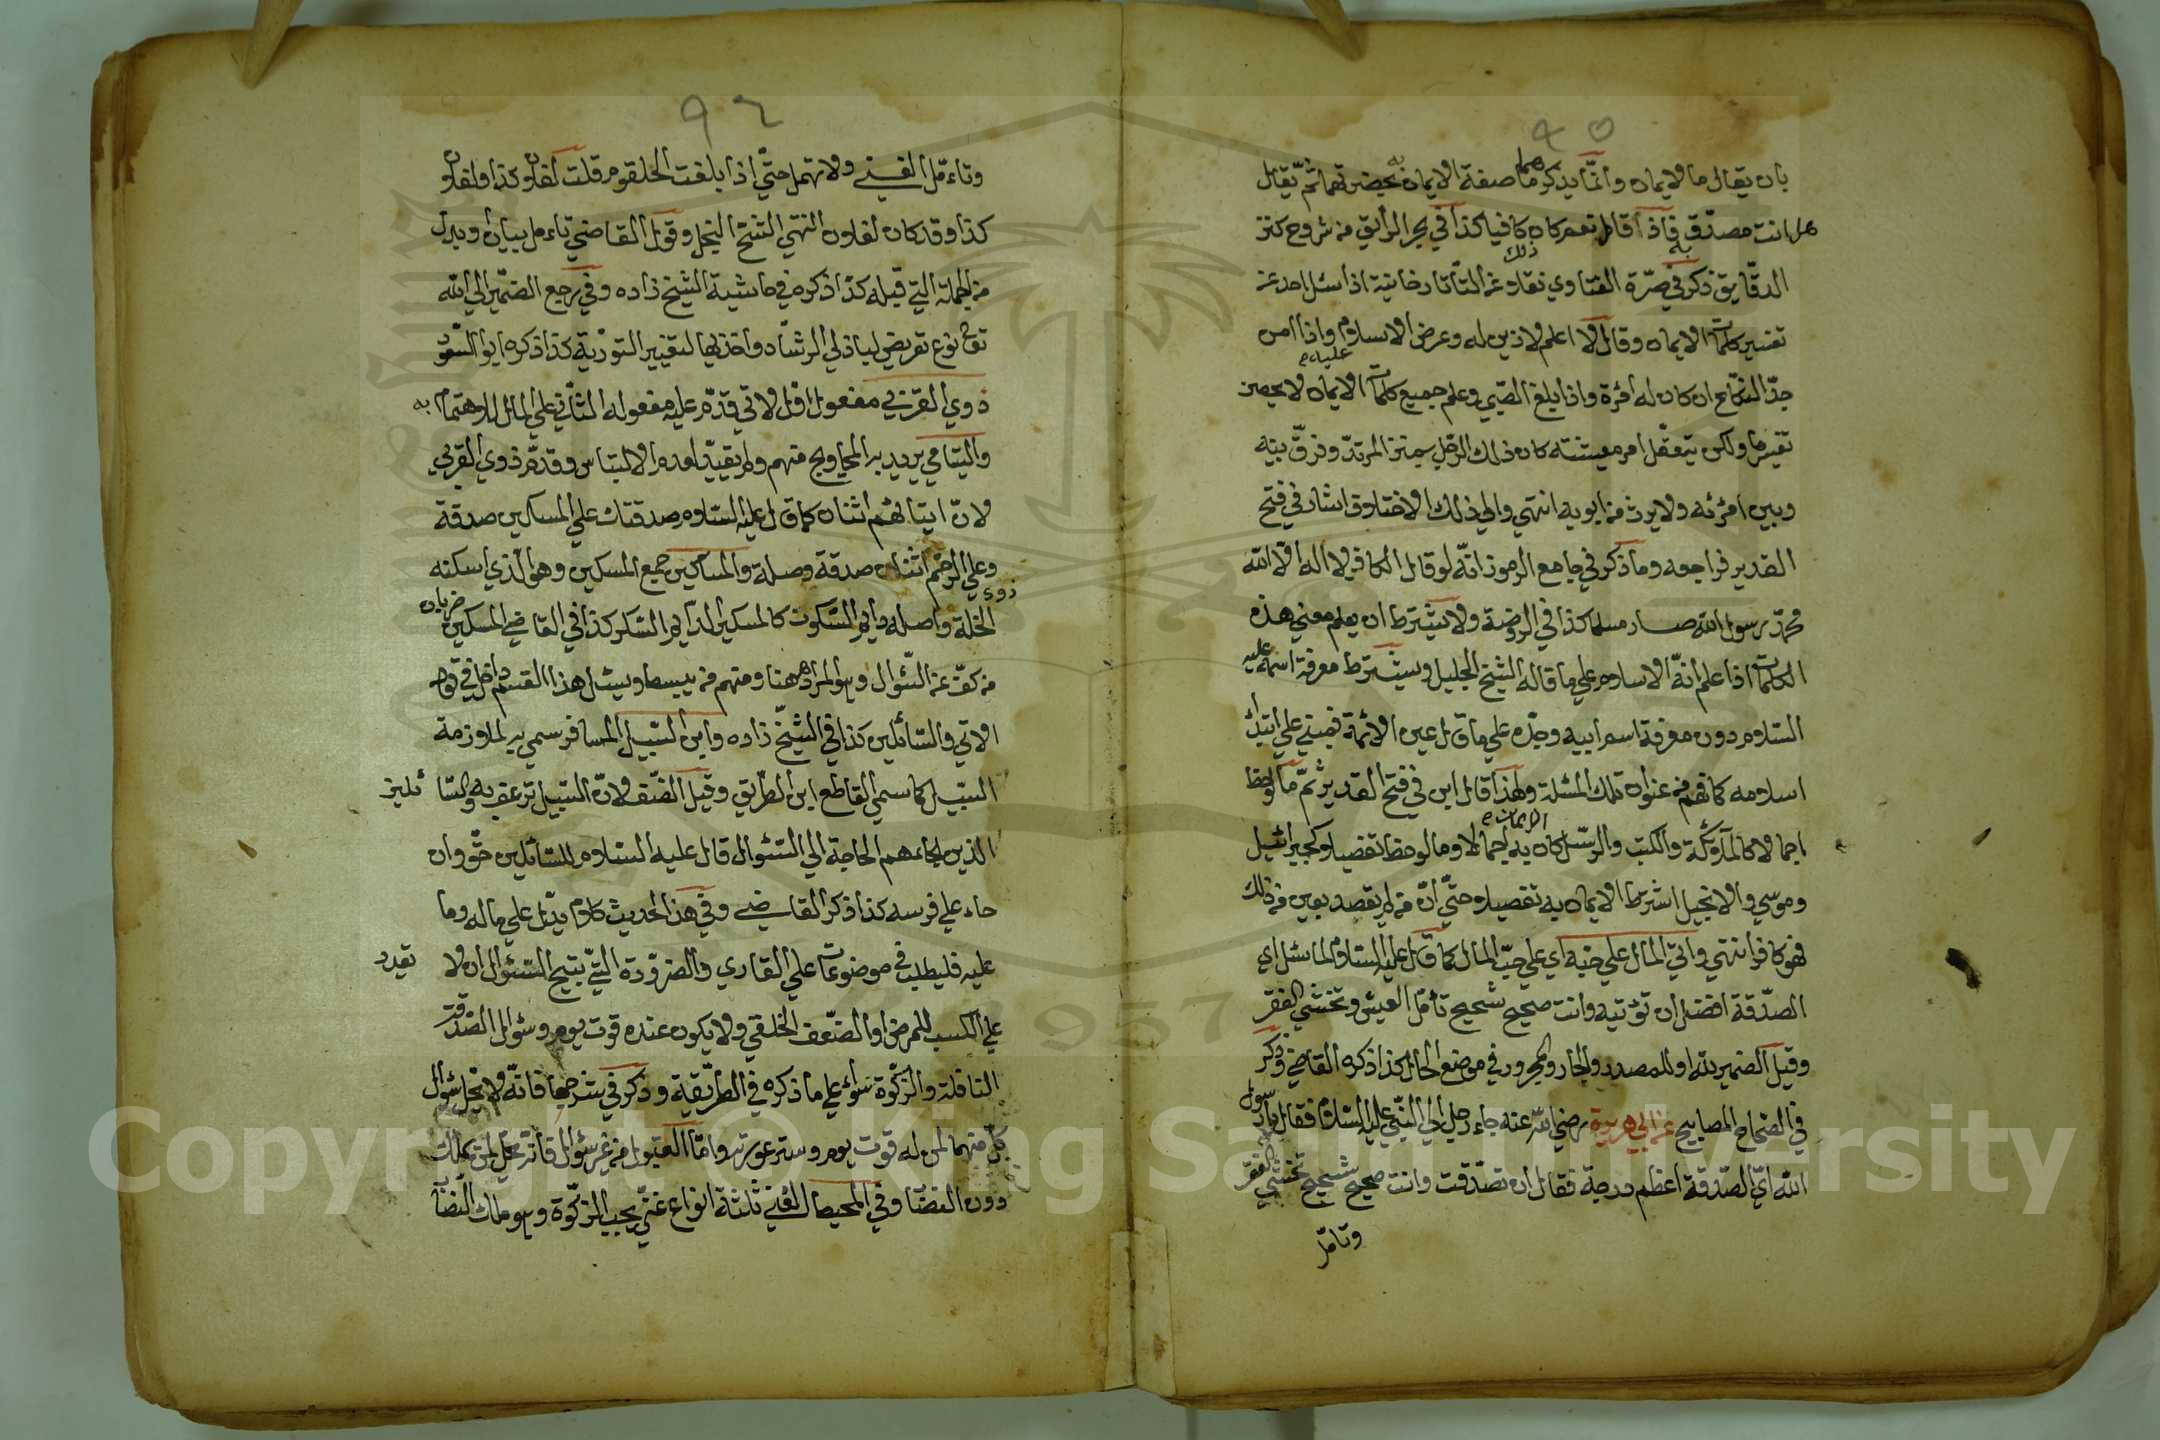 ٩٥
بان يقال ما الايمان وانما يذكر هما صفة الايمان بحضرتهما ثم يقال
هل انت مصدق به فاذا قال نعم كان ذلك كافيا كذا في بحر الرائق من شروح كنز
الدقايق ذكر في صرة الفتاوي نقلا عن التاتارخانية اذا سئل احد عن
تفسير كلمات الايمان وقال لا اعلم لا دين له وعرض عليه الاسلام واذا امن
جدد النكاح ان كان له امرأة واذا بلغ الصبي وعلم جميع كلمات الايمان لا يحضر
تفسيرها ولكن يتعقل امر معيشته كان ذلك الرجل بمنزلة المرتد وفرق بينه
وبين امرئه ولا يرث من ابويه انتهي والي ذلك الاختلاف اشار في فتح
القدير فراجعه وما ذكر في جامع الرموز انه لو قال الكافر لا اله الا الله
محمد رسول الله صار مسلما كذا في الروضة ولا يشترط ان يعلم معني هذه
الكلمات اذا علم انه الاسلام علي ما قاله الشيخ الجليل ويشترط معرفة اسمه عليه
السلام دون معرفة اسم ابيه وجده علي ما قال عين الائمة فيبني علي ابتداء
اسلامه كما فهم من عنوان تلك المسئلة ولهذا قال ابن في فتح القدير ثم ما لوحظ
اجمالا كالملائكة والكتب والرسل كان الايمان به اجمالا وما لوحظ تفصيلا كجبرائيل
وموسي والانجيل اشرط الايمان به تفصيلا حتي ان من لم يصدق بمعين من ذلك
فهو كافر انتهي واتي المال علي حبه اي علي حب المال كما قال عليه السلام لما سئل اي
الصدقة افضل ان تؤتيه وانت صحيح شحيح تأمل العيش وتخشي الفقر
وقيل الضمير لله او للمصدر والجار والمجرور في موضع الحال كذا ذكره القاضي وذكر
في الصحاح المصابيح عن ابي هريرة رضي الله عنه جاء رجل الي النبي عليه السلام فقال يا رسول
الله اي الصدقة اعظم درجة فقال ان تصدقت وانت صحيح شحيح تخشي الفقر
وتامل
٩٦
وتاءمل الغني ولا تمهل حتي اذا بلغت الحلقوم قلت لفلان كذا ولفلان
كذا وقد كان لفلان انتهي الشح البخل وقول القاضي تاءمل بيان وبدل
من الجملة التي قبله كذا ذكره في حاشية الشيخ زاده وفي رجع الضمير الي الله
تع نوع تعريض لباذلي الرشاد واخذيها لتغيير التورية كذا ذكره ابو السعود
ذوي القربي مفعول اول لاتي قدم عليه مفعوله الثاني علي المال للاهتمام به
واليتامي يريد به المحاويج منهم ولم يقيد لعدم الالتباس وقدم ذوي القربي
لان ايتائهم اثنان كما قال عليه السلام صدقتك علي المساكين صدقة
وعلي ذوي الرحم اثنتان صدقة وصلة والمساكين جمع المسكين وهو الذي اسكنه
الخلة واصله دايم السكون كالمسكير لدايم السكر كذا في القاضي المسكين ضربان
من كف عن السؤال وهو المراد ههنا ومنهم من يبسط ويسئل هذا القسم داخل في قوله
الاتي والسائلين كذا في الشيخ زاده وابن السبيل المسافر سمي به لملازمة
السبيل كما سمي القاطع ابن الطريق وقيل الضيف لان السبيل ترعف به والسائلين
الذين الجاءهم الحاجة الي السئوال قال عليه السلام للسائلين حق وان
جاء علي فرسه كذا ذكر القاضي وفي هذا الحديث كلام يدل علي ماله وما
عليه فليطلب في موضوعات علي القاري والضرورة التي تبيح السئوال ان لا تقدر
علي الكسب للمرض او الضعف الخلقي ولا يكون عنده قوت يوم وسئوال الصدقة
النافلة والزكوة سواء علي ما ذكره في الطريقة وذكر في شرحها فانه لا يحل سئوال
كل منهما لمن له قوت يوم وستر عورته واما القبول من غير سئوال فانه يحل لمن يملك
دون النصاب وفي المحيط الغني ثلثة انواع غني يجب الزكوة وهو مالك النصاب
Copyright © King Saud University
1957